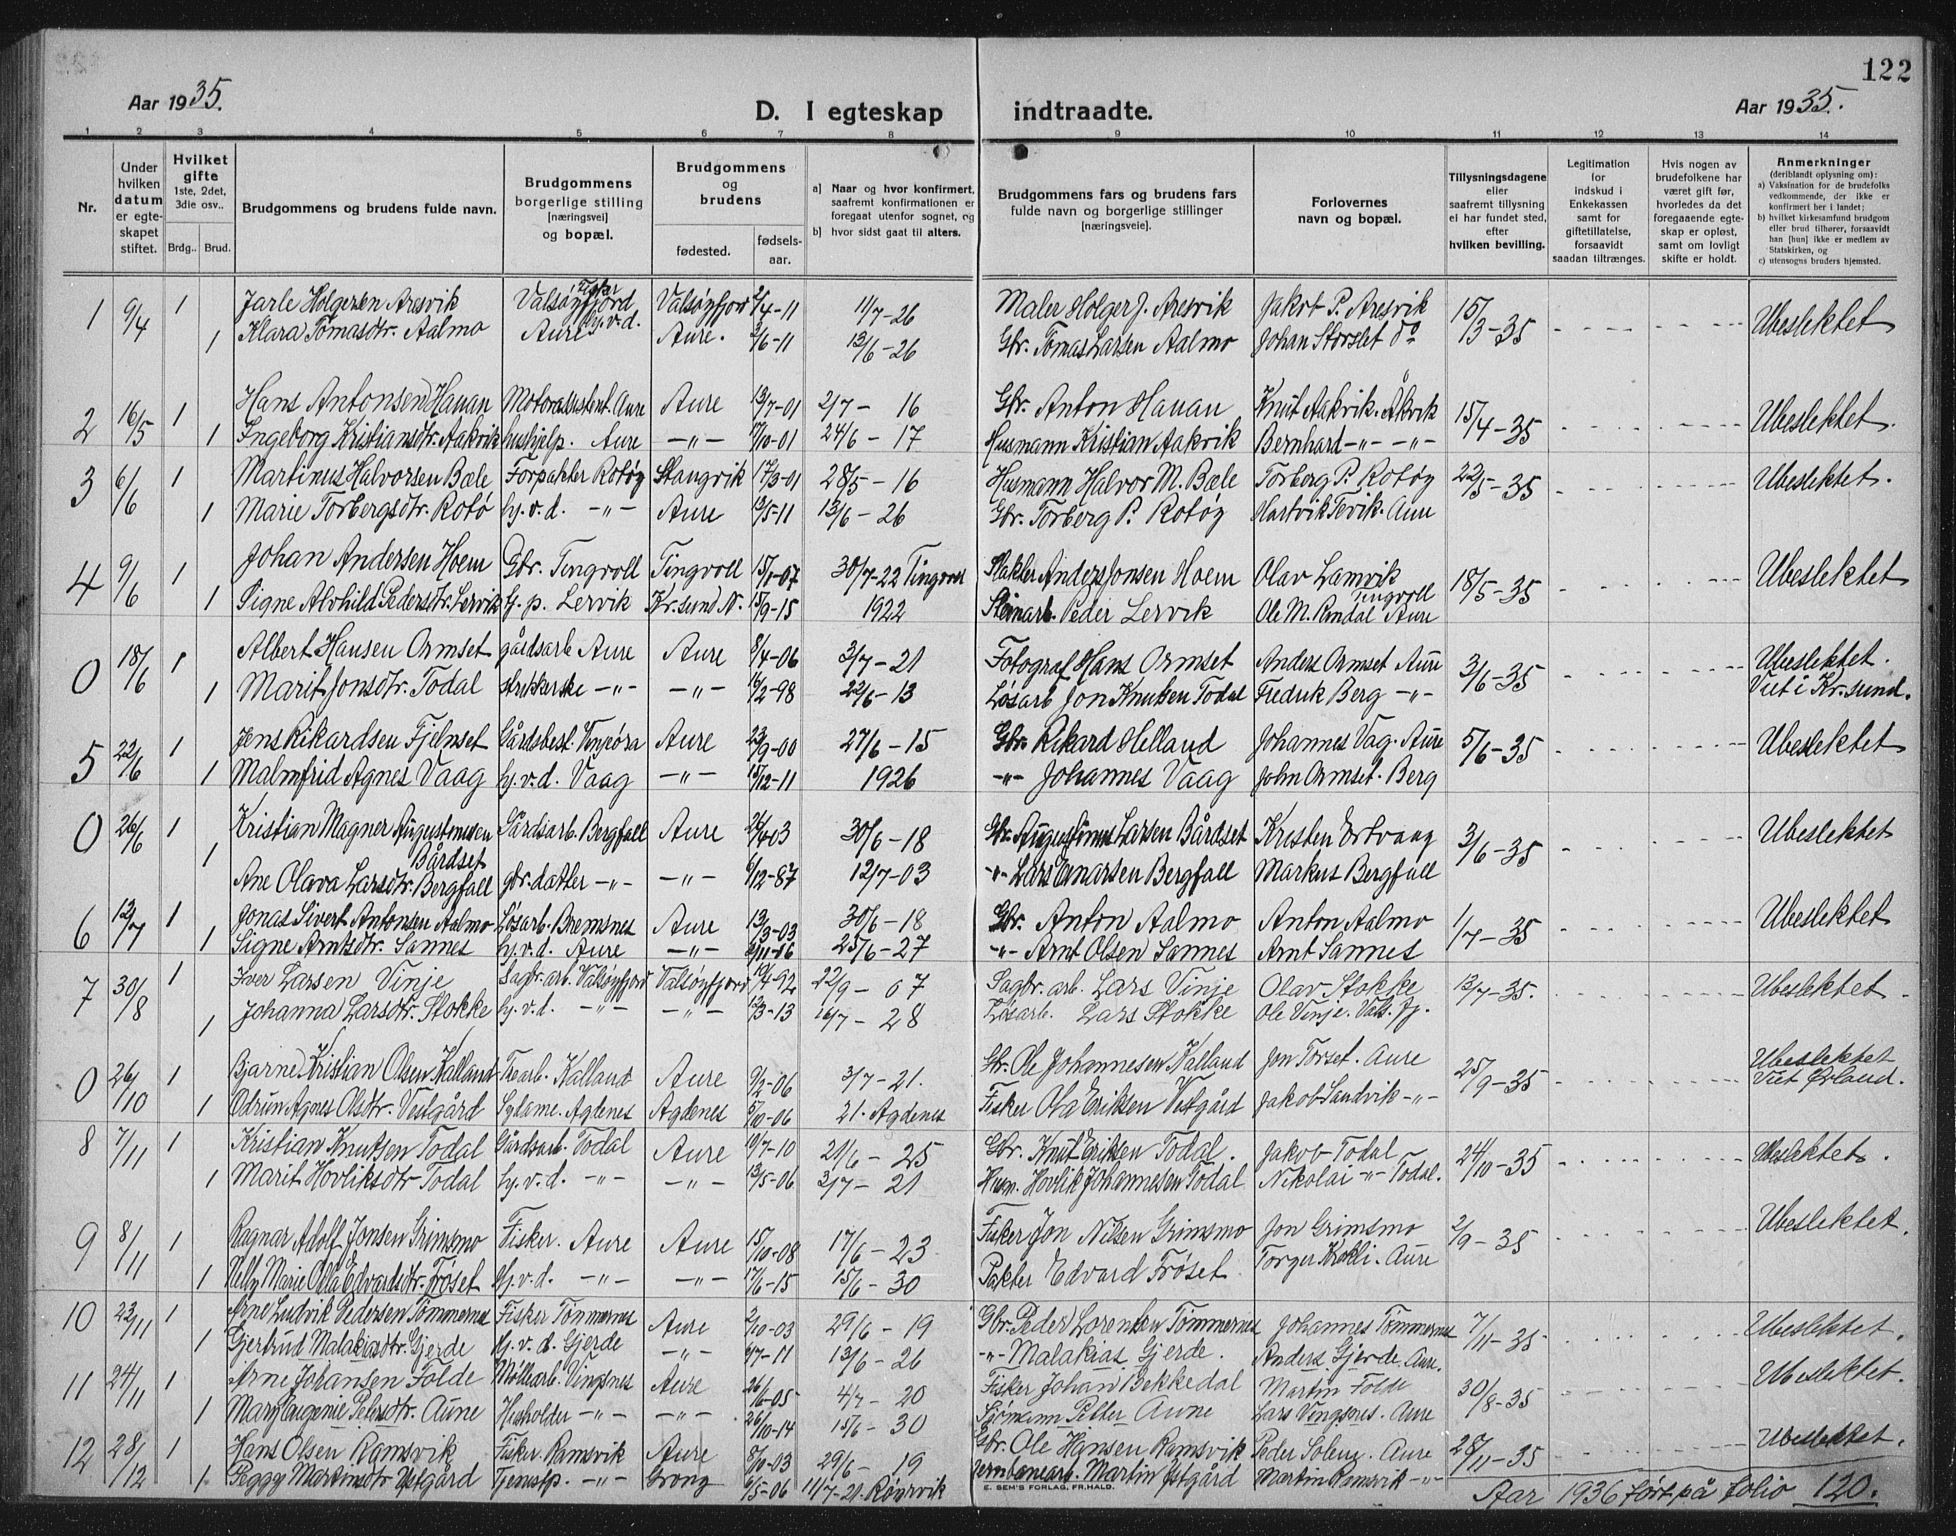 122
Aar 1935.
D. I egteskap indtraadte.
Aar 1935.
1 2 3 4 5 6 7 8 9 10 11 12 13 14
Nr.
Under hvilken datum er egteskapet stiftet.
Hvilket gifte 1ste, 2det, 3die osv..
Brdg.. Brud.
Brudgommens og brudens fulde navn.
Brudgommens borgerlige stilling [næringsvei] og bopæl.
Brudgommens og brudens
fødested. fødselsaar.
a) Naar og hvor konfirmert, saafremt konfirmationen er foregaat utenfor sognet, og
b) hvor sidst gaat til alters.
Brudgommens fars og brudens fars fulde navn og borgerlige stillinger [næringsveie].
Forlovernes navn og bopæl.
Tillysningsdagene eller saafremt tillysning ei har fundet sted, efter hvilken bevilling.
Legitimation for indskud i Enkekassen samt for giftetillatelse, forsaavidt saadan tiltrænges.
Hvis nogen av brudefolkene har været gift før, hvorledes da det foregaaende egteskap er opløst, samt om lovligt skifte er holdt.
Anmerkninger (deriblandt oplysning om):
a) Vaksination for de brudefolks vedkommende, der ikke er konfirmert her i landet;
b) hvilket kirkesamfund brudgom eller brud tilhører, forsaavidt han [hun] ikke er medlem av Statskirken, og
c) utensogns bruders hjemsted.
1 9/4 1 Jarle Holgersen Aresvik Fisker Valsøyfjord Valsøyfjord 2/4-11 11/7-26 Maler Holger J. Aresvik Jakob P. Aresvik 15/3-35 Ubeslektet
1 Klara Tomasdtr. Aalmo hj.v.d. Aure Aure. 3/6-11 13/6-26 Gbr. Tomas Larsen Aalmo Johan Storslet do
2 16/5 1 Hans Antonsen Hauan Motorassistent. Aure Aure 13/7-01 2/7-16 Gbr. Anton Hauan Knut Aakvik. Åkvik 15/4-35 Ubeslektet.
1 Ingeborg Kristiansdtr. Aakvik hushjelp. Aure -"- 17/10-01 24/6-17 Husmann Kristian Aakvik Bernhard -"- -"-
3 6/6 1 Martinus Halvorsen Bæle Forpakter Rotøy Stangvik 17/3-01 28/5-16 Husmann Halvor M. Bæle Torberg P. Rotøy 22/5-35 Ubeslektet.
1 Marie Torbergsdtr. Rotø hj.v.d. -"- Aure 13/5-11 13/6-26 Gbr. Torberg P. Rotøy Hartvik Tevik. Aure
4 9/6 1 Johan Andersen Hoem Gbr. Tingvoll Tingvoll 15/1-07 30/7-22 Tingvoll Slakter Anders Jonsen Hoem Olav Lamvik Tingvoll 18/5-35 Ubeslektet
1 Signe Alvhild Pedersdtr. Lervik h.p. Lervik Kr.sund N. 15/9-15 1922 Steinarb. Peder Lervik Ole M. Rendal Aure
0 18/6 1 Albert Hansen Ormset gårdsarb Aure Aure 8/4-06 3/7-21 Fotograf Hans Ormset Anders Ormset Aure 3/6-35 Ubeslektet.
1 Marit Jonsdtr. Todal strikkerske -"- -"- 16/2-98 22/6-13 Løsarb Jon Knutsen Todal Fredrik Berg -"- Viet i Kr.sund.
5 22/6 1 Jens Rikardsen Fjelnset Gårdsbest. Vinjeøra Aure 23/9-00 27/6-15 Gbr. Rikard Helland Johannes Vag. Aure 5/6-35 Ubeslektet
1 Malmfrid Agnes Vaag hj.v.d. Vaag -"- 15/12-11 1926 -"- Johannes Vaag John Ormset. Berg
0 26/6 1 Kristian Magner Augustinussen Bårdset Gårdsarb. Bergfall Aure 03 30/6-18 Gbr. Augustinus Larsen Bårdset Kristen Ertvaag 3/6-35 Ubeslektet
1 Ane Olava Larsdtr. Bergfall gbr.datter -"- -"- 6/12-87 12/7-03 -"- Lars Bergfall Markus Bergfall
6 12/7 1 Jonas Sivert Antonsen Aalmo Løsarb. Bremsnes Aure 13/3-03 30/6-18 Gbr. Anton Aalmo Anton Aalmo 1/7-35 Ubeslektet
1 Signe Arntsdtr. Sannes hj.v.d. Aure -"- 2/11-06 25/6-27 -"- Arnt Olsen Sannes Arnt Sannes
7 30/8 1 Iver Larsen Vinje Sagbr.arb. Valsøyfjord Valsøyfjord 19/4-92 22/9-07 Sagbr.arb. Lars Vinje Olav Stokke 13/7-35. Ubeslektet
1 Johanna Larsdtr. Stokke hj.v.d. -"- -"- 13/3-13 26/7-28 Løsarb. Lars Stokke Ole Vinje. Vals.fj.
0 26/10 1 Bjarne Kristian Olsen Kalland Trearb. Kalland Aure 9/2-06 3/7-21. Gb. Ole Johannesen Kalland Jon Torset. Aure 25/9-35 Ubeslektet
1 Odrun Agnes Olsdtr. Vestgård Sydame. Agdenes Agdenes 5/10-06 21. Agdenes Fisker Ola Eriksen Vestgård Jakob Sandvik -"- Viet Ørland.
8 7/11 1 Kristian Knutsen Todal Gårdsarb. Todal Aure 19/7-10 21/6-25 Gbr. Knut Eriksen Todal. Jakob Todal 24/10-35 Ubeslektet.
1 Marit Hovliksdtr Todal hj.v.d. -"- -"- 13/5-06 3/7-21 Husm. Hovlik Johannesen Todal Nikolai -"- Todal.
9 8/11 1 Ragnar Adolf Jonsen Grimsmo Fisker. Aure Aure 15/10-08 17/6-23 Fisker Jon Nilsen Grimsmo Jon Grimsmo 2/9-35 Ubeslektet.
1 Nelly Marie Olea Edvardsdtr. Frøset Hj.v.d. -"- -"- 17/6-15 15/6-30 Pakter Edvard Frøset. Torger Krokli. Aure
10 23/11 1 Arne Ludvik Pedersen Tømmernes Fisker Tømmernes Aure 2/10-03 29/6-19 Gbr. Peder Lorentsen Tømmernes Johannes Tømmernes 7/11-35 Ubeslektet.
1 Gjertrud Malakiasdtr. Gjerde Hj.v.d. Gjerde -"- 7-11 13/6-26 -"- Malakias Gjerde. Anders Gjerde. Aure.
11 24/11 1 Arne Johansen Folde Møllearb. Vingsnes Aure 26/6-05 4/7-20 Fisker Johan Bekkedal Martin Folde 30/8-35 Ubeslektet.
1 Mary Eugenie Petersdtr. Aune Husholder -"- -"- 26/10-14 15/6-30 Sjømann Petter Aune Lars Vingsnes. Aure
12 28/12 1 Hans Olsen Ramsvik Fisker. Ramsvik Aure 8/10-03 29/6-19 Gbr. Ole Hansen Ramsvik Peder Solem. Aure 28/11-35 Ubeslektet.
1. Peggy Martinsdtr Østgård Tjenstp. -"- Grong 6/5-06 11/7-21. Rørvik Jernbanearb. Martin Østgård Martin Ramsvik -"-
E. SEM'S FORLAG, FR.HALD.
Aar 1936 ført på folio 120.